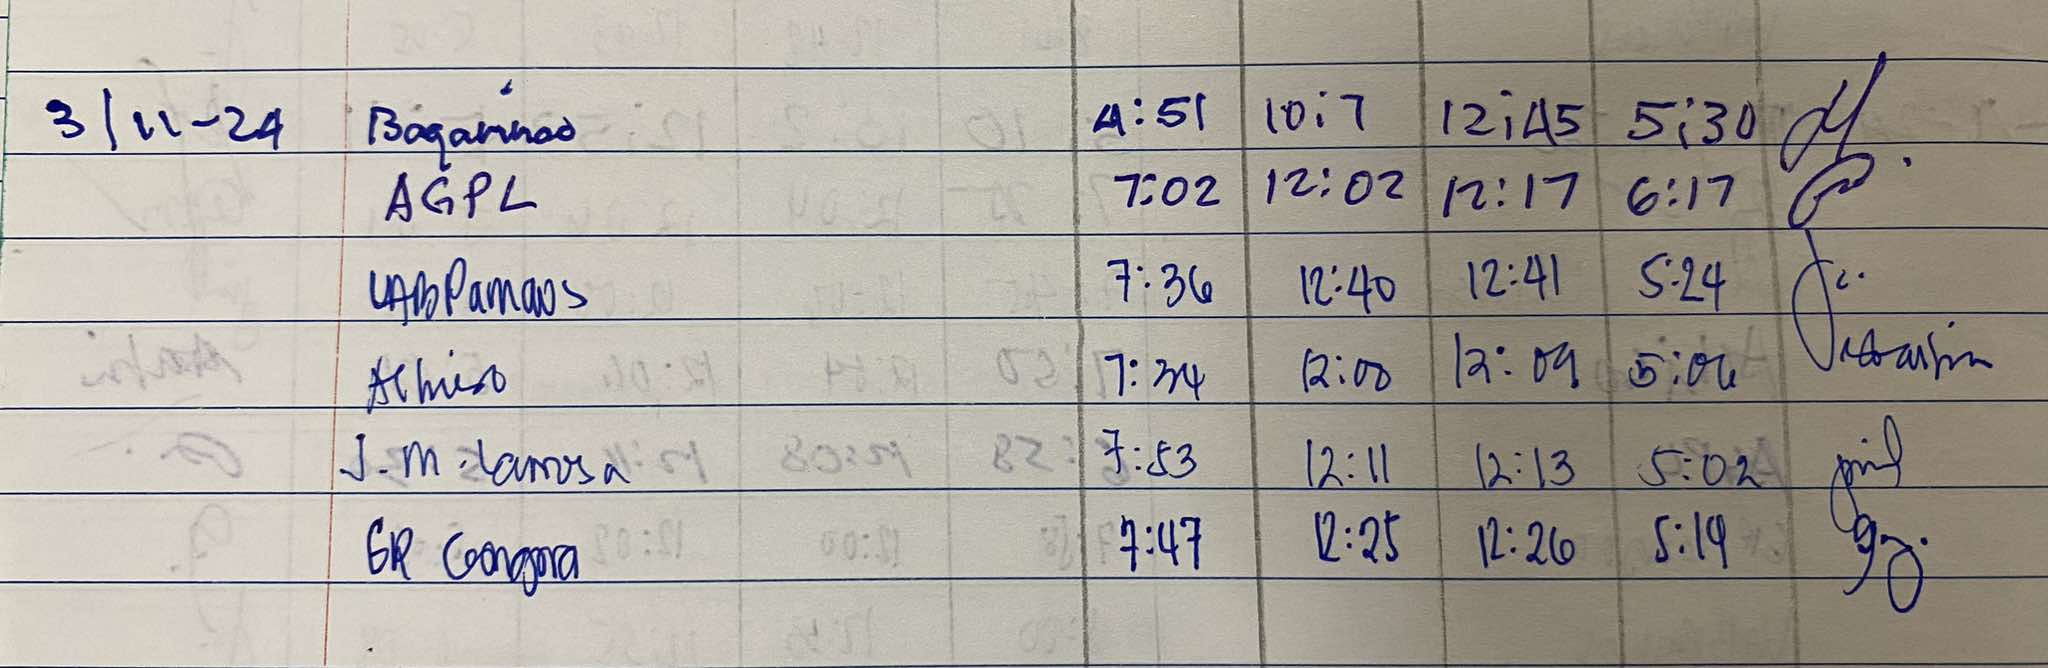 3/11-24 Bagarinao 4:51 10:7 12:45 5:30
AGPL 7:02 12:02 12:17 6:17
7:36 12:40 12:41 5:24
7:34 12:00 12:09 5:06
J.M. Lamosa 7:53 12:11 12:13 5:02
GR Gongora 7:47 12:25 12:26 5:19